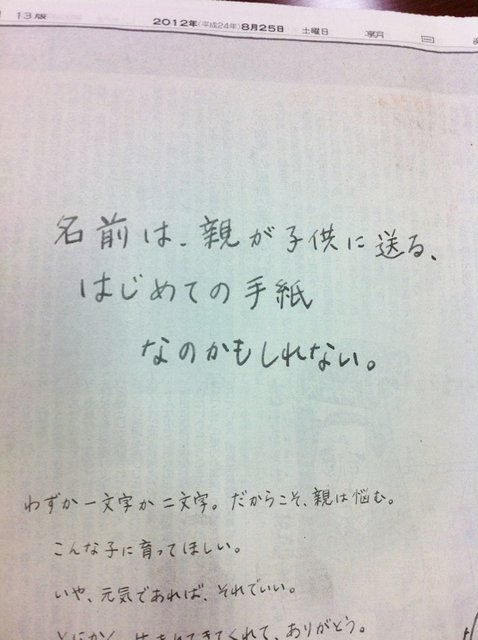 13版 2012年(平成24年)8月25日 土曜日 朝日
名前は、親が子供に送る、
はじめての手紙
なのかもしれない。
わずか一文字か二文字。だからこそ、親は悩む。
こんな子に育ってほしい。
いや、元気であれば、それでいい。
とにかく、生まれてきてくれて、ありがとう。